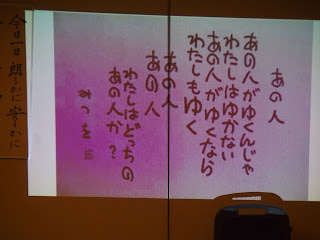 あの人
あの人がゆくんじゃ
わたしはゆかない
あの人がゆくなら
わたしもゆく
あの人
あの人
わたしはどっちの
あの人か?
みつを
今日一日 朗らかに 安らかに